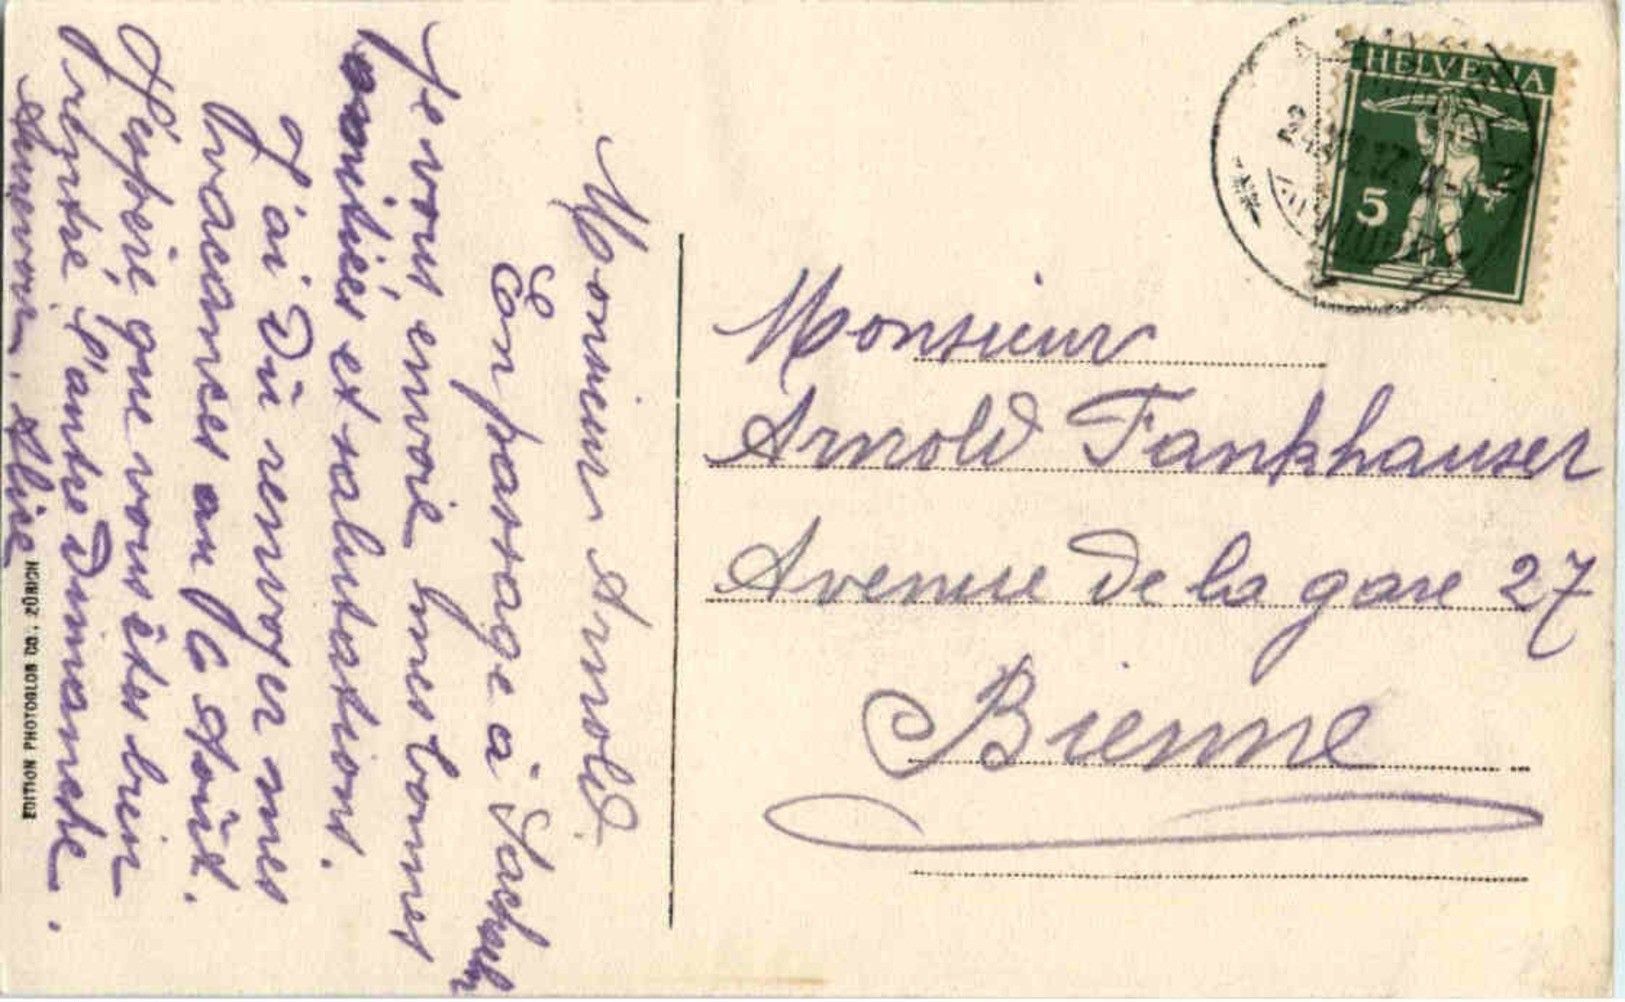 Monsieur Arnold.
En passage à Sachseln
Je vous envoie mes bonnes
amitiés et salutations.
J'ai dû renvoyer mes
vacances au 16 Août.
J'espère que vous êtes bien
rentré l'autre Dimanche.
Aurevoir. Alice
EDITION PHOTOGLOB CO., ZÜRICH
HELVETIA
5
Monsieur
Arnold Fankhauser
Avenue de la gare 27
Bienne